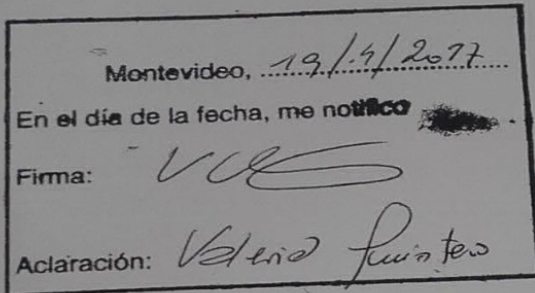 Montevideo, 19/4/2017
En el día de la fecha, me notifico
Firma:
Aclaración: Valeria Quintero